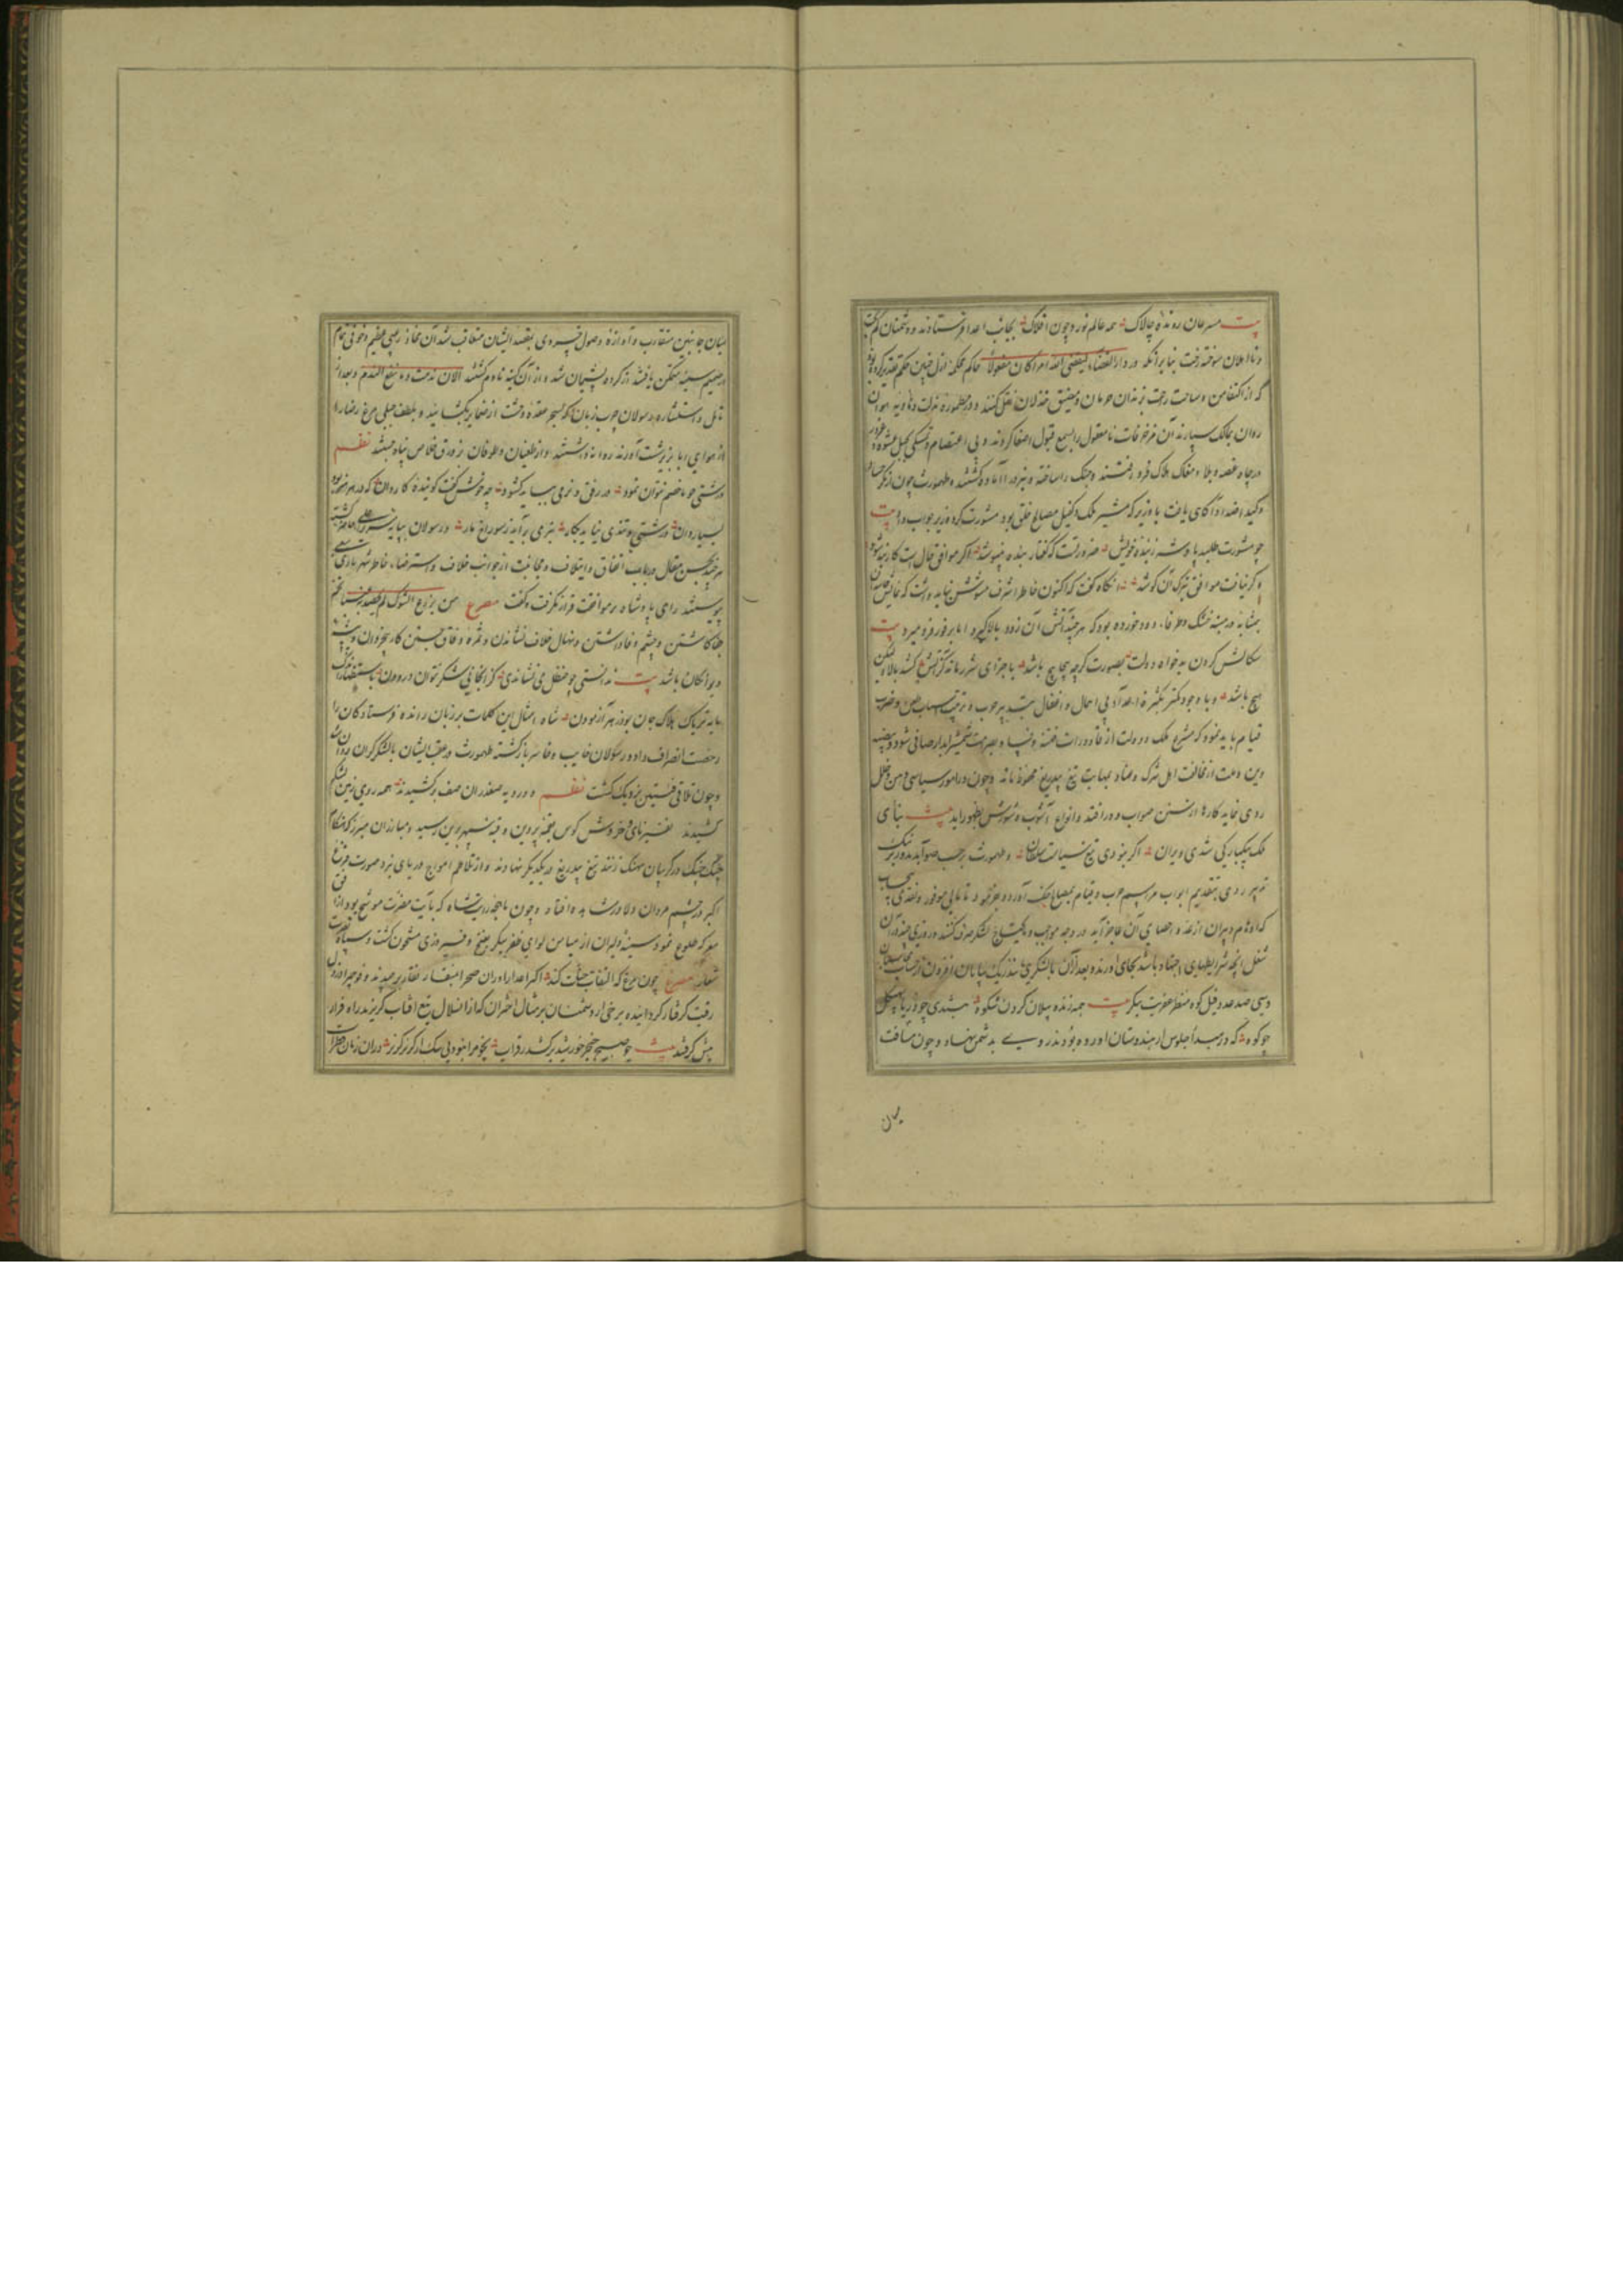 بیت مسرعان رونده چالاک همه عالم نورد چون افلاک بجانب اعدا فرستادند و دشمنان
و نااهلان سوخته رخت بنا برآنکه در دار القضاء لیقضی الله امرا کان مفعولا حاکم محکمه ازل چنین حکم تقدیر کرده بود
که از اکتفا من وساحت رحمت بزندان حرمان ومضیق خذلان نقل کنند و در مطموره مذلت وهاویه هوان
روان بمالک سپارند آن مزخرفات نامعقول را بسمع قبول اصغا کردند و بی اعتصام و تمسکی بحبل
در چاه غصه وبلا و مغاک هلاک فرو رفتند و جنک را ساخته و نبرد را آماده کشتند و طهمورث چون از مکر
وکید اضداد آگاهی یافت با وزیر که مشیر ملک و کفیل مصالح خلق بود مشورت کرد وزیر جواب داد بیت
چو مشورت طلبد پادشه ز بنده خویش ضرورتست که گفتار بنده بنیوشد اگر موافق حال است کار بند شود
و گر نیافت موافق بترک آن کوشد و آنکاه گفت که اکنون خاطر اشرف مشوش نباید داشت که
بمثابه در منه خشک و طرفاء دود خورده بود که هر چند آتش آن زود بالا گیرد اما بر فور فرو میرد بیت
سکالش کردن بدخواه دولت بصورت گرچه پیچاپیچ باشد باجزای شرر ماند کز آتش کشد بالا ولیکن
هیچ باشد و با وجود کمتر بکثرة اعدا و پی اهمال و اغفال بتدبیر حرب و ترتیب اسباب طعن و ضرب
قیام باید نمود که مشرع ملک و دولت از قاذورات فتنه و فساد بصرامت شمشیر آبدار صافی شود و بیضه
دین و ملت از مخالفت اهل شرک و عناد بمهابت تیغ بیدریغ محفوظ ماند و چون در امور سیاسی وهن و خلل
روی نماید کارها از سنن صواب دور افتد و انواع آشوب و شورش بظهور آید بیت بنای
ملک بیکبارگی شدی ویران اگر نبودی تیغ سیاست سلطان و طهمورث بر حسب صوابدید وزیر نیک
تدبیر روی بتقدیم ابواب مراسم حرب و قیام بمصالح جنک آورد و بفرمود تا مالی موفور و نقدی بیحساب
که اوهام دبیران از عد و احصای آن عاجز آید در وجه مواجب و مایحتاج لشکر صرف کنند و روزی چند در آن
شغل آنچه شرایط هیابی اجتهاد باشد بجای آوردند و بعد از آن با لشکری نزدیک بیابان افزون از حساب
و سی صد عدد فیل کوه منظر عفریت پیکر بیت همه زنده پیلان گردون شکوه بتندی چو دریا بهیکل
چو کوه که در مبدأ جلوس از هندوستان آورده بودند روی به دشمن نهاد و چون مسافت
میان
میان جانبین متقارب و آوازه وصول خسروی بقصد ایشان متعاقب شد آن مخاذیل رعبی عظیم و خوفی تمام
در صمیم سینه متمکن یافتند از کرده پشیمان شد و از آن کینه نادم گشتند الان ندمت و ما ینفع الندم و بعد از
تامل و استشاره رسولان چرب زبان که بسحر عقده وحشت از ضمایر بگشایند و بلطف حیلی مرغ رضا را
از هوای ابا بر زیر شست آورند روانه داشتند و از طغیان و طوفان بزورق خلاص پناه جستند نظم
درشتی چو با خصم نتوان نمود در رفق و نرمی بباید گشود چه خوش گفت گوینده کاردان که در هر هنر بود
بسیار دان درشتی و تندی نیاید بکار بنرمی برآید ز سوراخ مار و رسولان بپایه سریر اعلی حاضر گشتند
هر چند بحسن مقال در باب اتفاق و ایتلاف و مجانبت از جوانب خلاف و استرضاء خاطر شهریاری سعی
پیوستند رای پادشاه بر موافقت قرار نگرفت و گفت مصرع من یزرع الشوک لم یحصد به عنبا تخم
جفا کاشتن و چشم وفا داشتن و نهال خلاف نشاندن و ثمره وفاق جستن کار بیخردان و پیشه
دیوانگان باشد بیت ندانستی چو حنظل می نشاندی کز آنجا نی شکر نتوان درودن
مایه تریاک هلاک جان بود زهر آزمودن شاه امثال این کلمات بر زبان رانده فرستادگان را
رخصت انصراف داد و رسولان خایب و خاسر بازگشته طهمورث در عقب ایشان با لشکر گران روان شد
و چون تلاقی فئتین نزدیک گشت نظم دو رویه صفدران صف برکشیدند همه روی زمین لشکر
کشیدند نفیر نای و خروش کوس بقبه پروین و قبه سپهر برین رسید و مبارزان مبرز که هنگام
جنگ چنگ در گریبان نهنگ زنند تیغ بیدریغ در یکدیگر نهادند و از تلاطم امواج دریای نبرد صورت فزع
اکبر در چشم مردان دلاور مشاهده افتاد و چون ماهچه رایت شاه که بآیت مضرت موشح بود از افق
معرکه طلوع نمود سینه دلیران از میامن لوای ظفر پیکر بفتح و فیروزی مشحون گشت و سپاه نصرت
شعار مصرع چون مرغ که التفات حبات کند اکثر اعدا را در آن صحرا بمنقار نقار برچیدند و فوجی را در ذل
رقیت گرفتار گردانیده برخی از دشمنان بر مثال اختران که از استلال تیغ آفتاب گریزند راه فرار
پیش گرفتند بیت چو صبح خنجر خورشید برکشد ز قراب بجز مرا نبود بی شک از گریز گریز در آن زمان